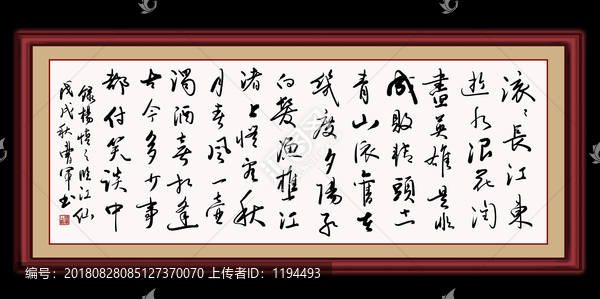 滚〻長江東
逝水浪花淘
盡英雄是非
成敗轉頭空
青山依舊在
幾度夕陽紅
白髮漁樵江
渚上慣看秋
月春風一壺
濁酒喜相逢
古今多少事
都付笑談中
錄楊慎之臨江仙
戊戌秋曹軍書
编号：20180828085127370070 上传者ID：1194493